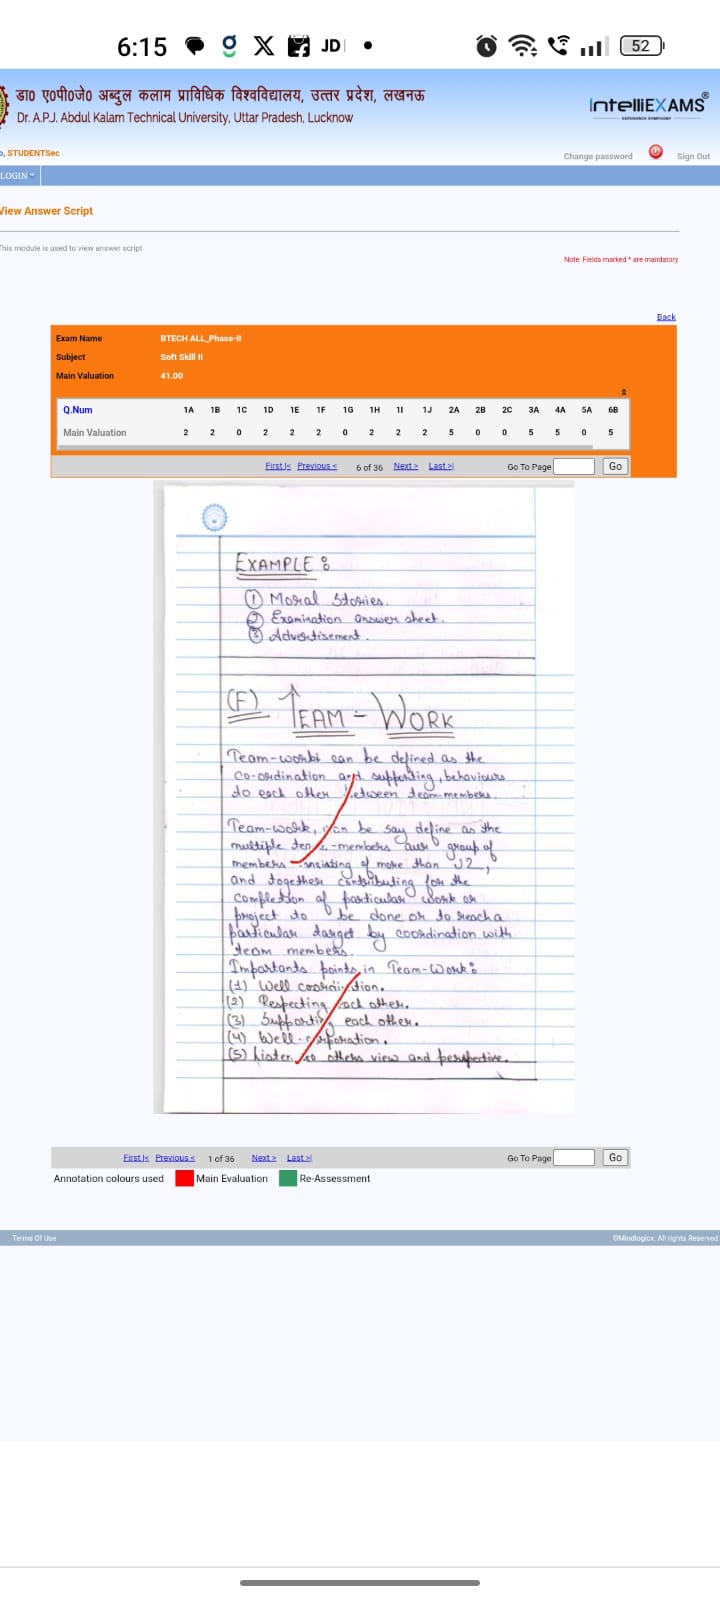 6:15 JD 52
डा० ए०पी०जे० अब्दुल कलाम प्राविधिक विश्वविद्यालय, उत्तर प्रदेश, लखनऊ
Dr. A.P.J. Abdul Kalam Technical University, Uttar Pradesh, Lucknow
IntelliEXAMS
o, STUDENTSec
Change password Sign Out
LOGIN
View Answer Script
This module is used to view answer script
Note: Fields marked * are mandatory
Back
Exam Name BTECH ALL_Phase-II
Subject Soft Skill II
Main Valuation 41.00
Q.Num 1A 1B 1C 1D 1E 1F 1G 1H 1I 1J 2A 2B 2C 3A 4A 5A 6B
Main Valuation 2 2 0 2 2 2 0 2 2 2 5 0 0 5 5 0 5
First|< Previous < 6 of 36 Next > Last >| Go To Page Go
EXAMPLE :
(1) Moral Stories.
(2) Examination answer sheet.
(3) Advertisement.
(F) TEAM - WORK
Team-work can be defined as the
co-ordination and supporting, behaviours
to each other between team-members.
Team-work, can be say define as the
multiple -members group of
members more than 2,
and together contributing for the
completion of particular work or
project to be done or to reach a
particular target by coordination with
team members.
Importants points in Team-Work:
(1) Well coordination.
(2) Respecting each other.
(3) Supporting each other.
(4) Well
(5) Listen to others view and perspective.
First|< Previous < 1 of 36 Next > Last >| Go To Page Go
Annotation colours used Main Evaluation Re-Assessment
Terms Of Use ©Mindlogicx. All rights Reserved